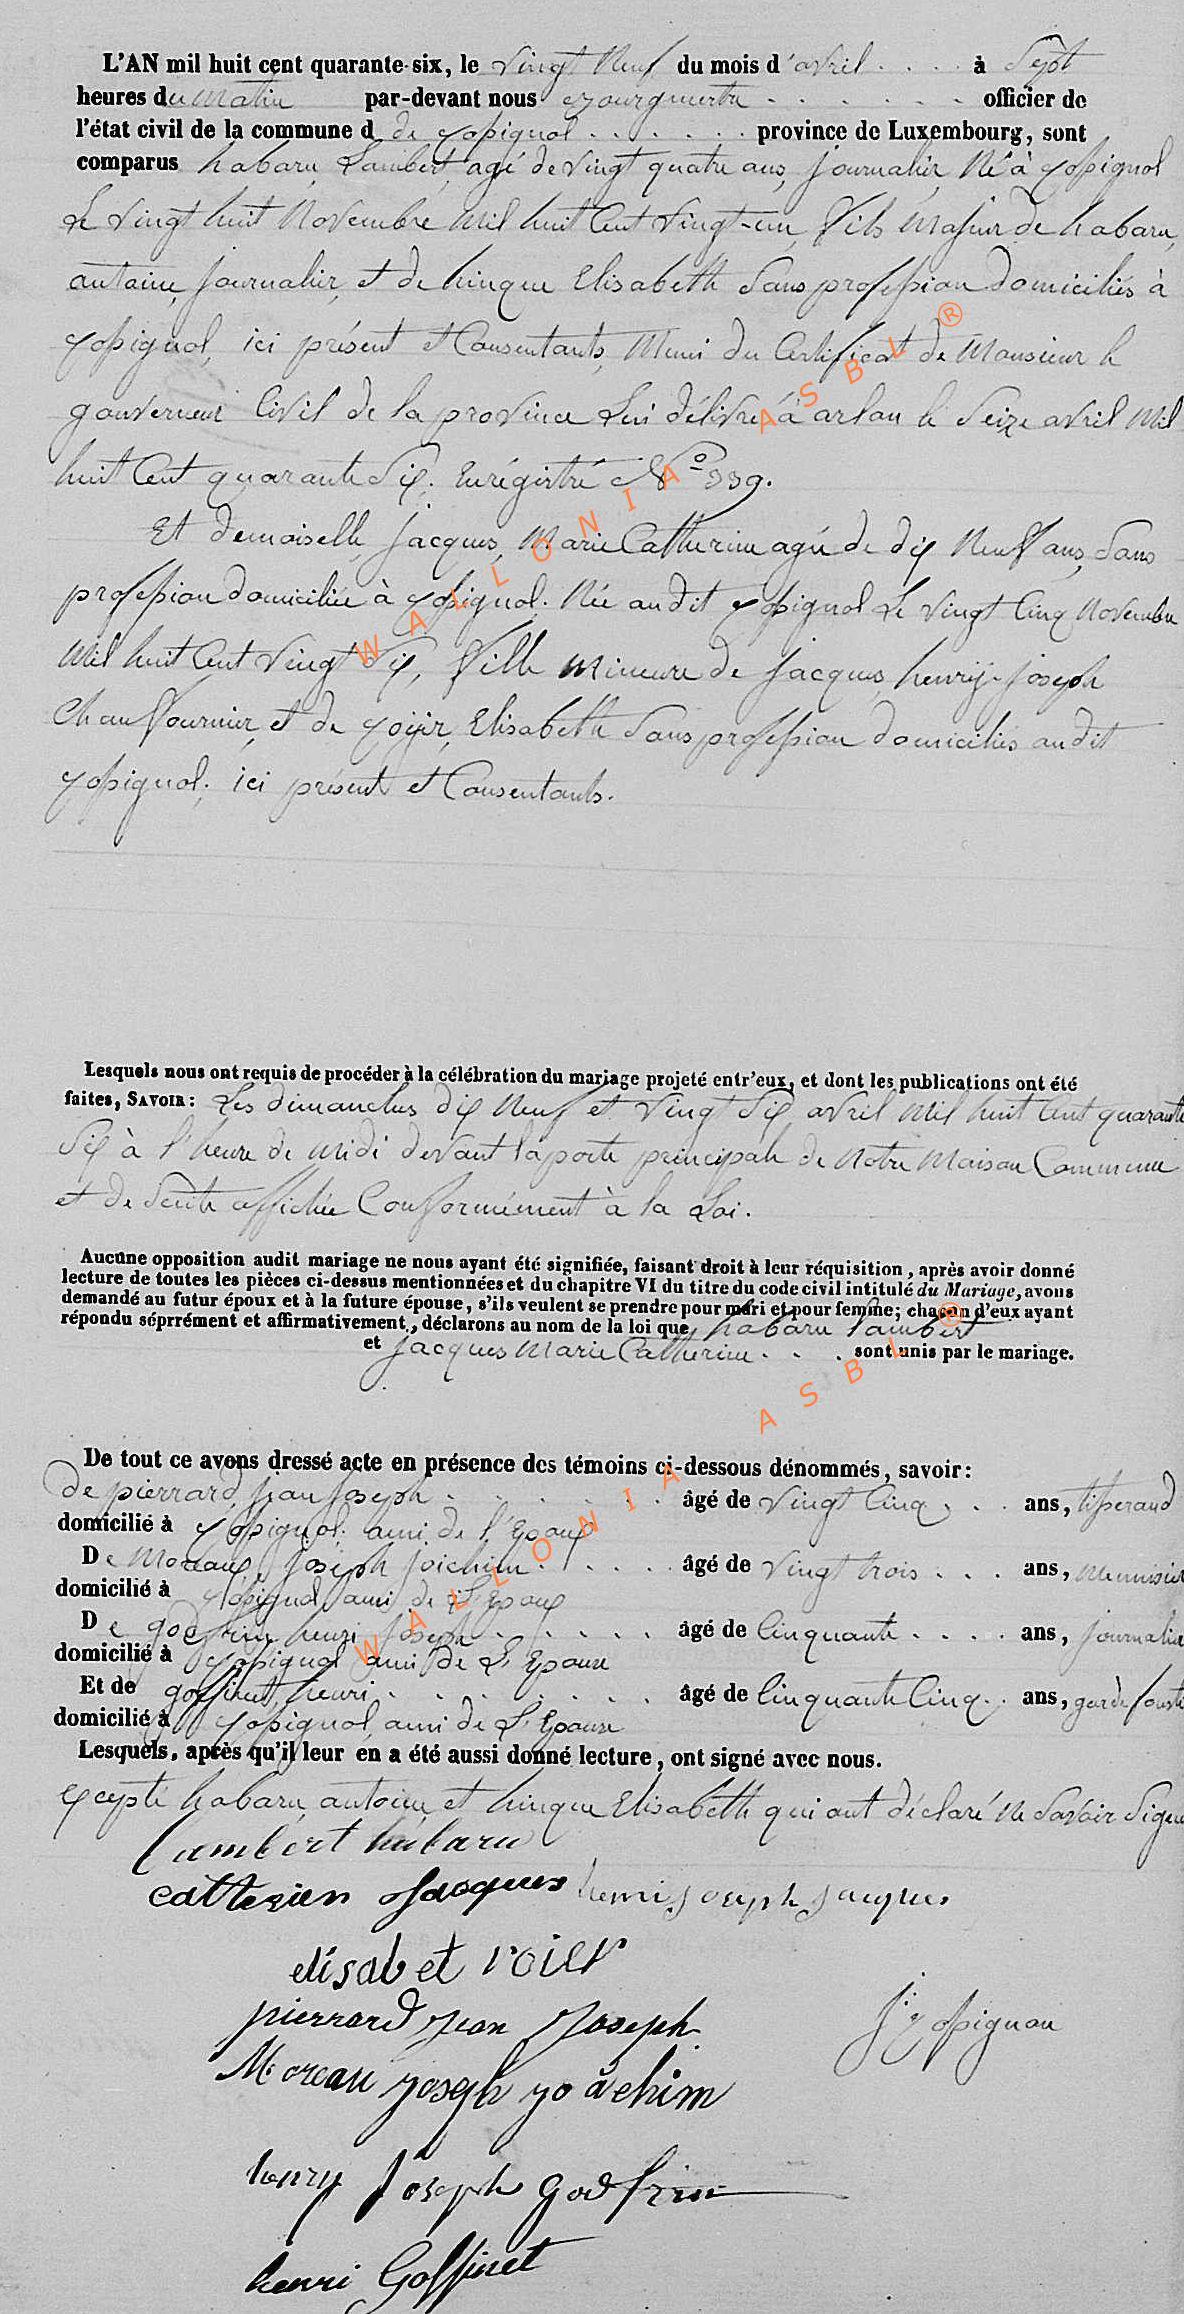 L'AN mil huit cent quarante-six, le vingt Neuf du mois d'avril . . . . à Sept
heures du Matin par-devant nous Bourgmestre . . . . . . . officier de
l'état civil de la commune d de yopignol . . . . . . province de Luxembourg, sont
comparus habaru, Lambert, agé de vingt quatre ans, journalier, Né à yopignol
Le vingt huit Novembre Mil huit Cent vingt-un, fils Majeur de habaru,
antoine, journalier, et de hinque Elisabeth Sans profession domiciliés à
yopignol, ici présent et Consentants, Muni du Certificat de Monsieur le
gouverneur Civil de la province Lui délivré à arlon le Seize avril Mil
huit Cent quarante Six. Enrégistré No 339.
Et demoiselle, jacques, Marie Catherine agée de dix Neuf ans, Sans
profession domiciliée à yopignol. Née audit yopignol Le vingt Cinq Novembre
Mil huit Cent vingt Six, fille Mineure de jacques, henry-joseph
Chaufournier, et de yoyir, Elisabeth Sans profession domiciliés audit
yopignol, ici présent et Consentants.
Lesquels nous ont requis de procéder à la célébration du mariage projeté entr'eux, et dont les publications ont été
faites, SAVOIR : Les dimanches dix Neuf et vingt Six avril Mil huit Cent quarante
Six à l'heure de Midi devant la porte principale de Notre Maison Commune
et de Suite affichée Conformément à la Loi.
Aucune opposition audit mariage ne nous ayant été signifiée, faisant droit à leur réquisition, après avoir donné
lecture de toutes les pièces ci-dessus mentionnées et du chapitre VI du titre du code civil intitulé du Mariage, avons
demandé au futur époux et à la future épouse, s'ils veulent se prendre pour mari et pour femme; chacun d'eux ayant
répondu séprrément et affirmativement, déclarons au nom de la loi que habaru Lambert
et jacques Marie Catherine . . . sont unis par le mariage.
De tout ce avons dressé acte en présence des témoins ci-dessous dénommés, savoir :
de pierrard, jean joseph . . . . . . âgé de vingt Cinq . . . ans, tisserand
domicilié à yopignol. ami de l'Epoux
De Moreaux, joseph joichim . . . . . âgé de vingt trois . . . ans, Menuisier
domicilié à yopignol ami de L'Epoux
De godfrin henri joseph . . . . . âgé de Cinquante . . . . ans, journalier
domicilié à yopignol ami de L'Epouse
Et de goffinet, henri . . . . . . . âgé de Cinquante Cinq . . ans, garde forestier
domicilié à yopignol, ami de L'Epouse
Lesquels, après qu'il leur en a été aussi donné lecture, ont signé avec nous.
excepté habaru antoine et hinque Elisabeth qui ont déclaré Ne Savoir Signer
Lambert habaru
catterien Jacques henri joseph jacques
elisabet roier
pierrard jean Joseph
Moreau joseph yoachim
henry joseph godfrin
henri Goffinet
WALLONIA ASBL ®
WALLONIA ASBL ®